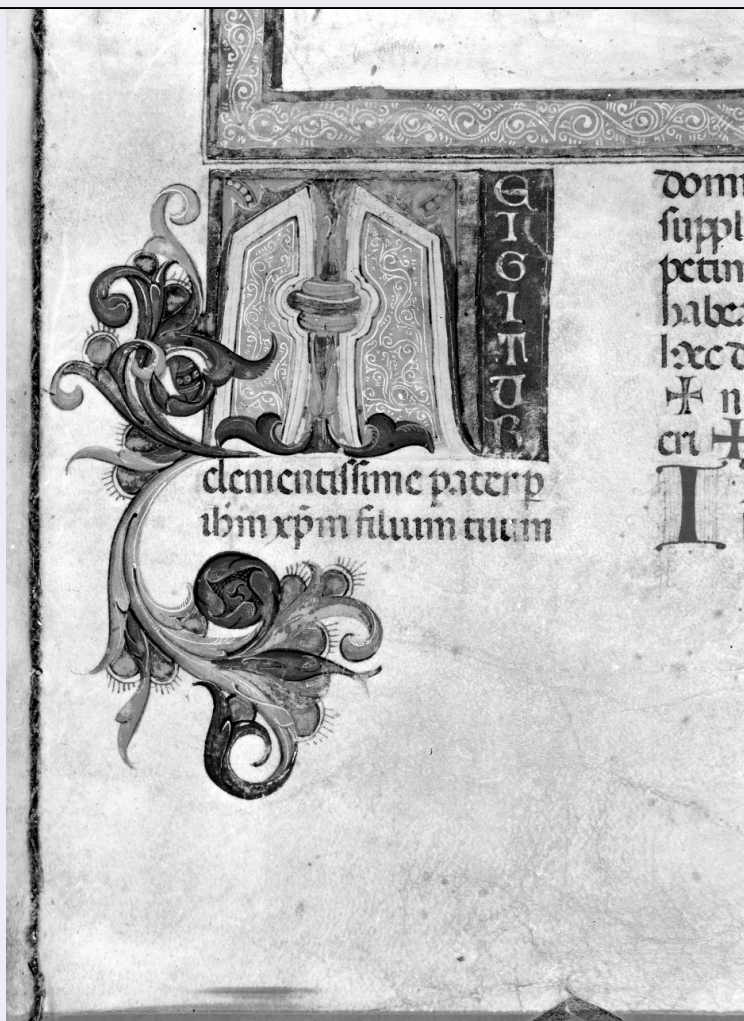 T
E
I
G
I
T
U
R
clementissime pater p
ihm xpm filium tuum
domi
suppl
petim
habea
hec d
✠ n
cri ✠
I